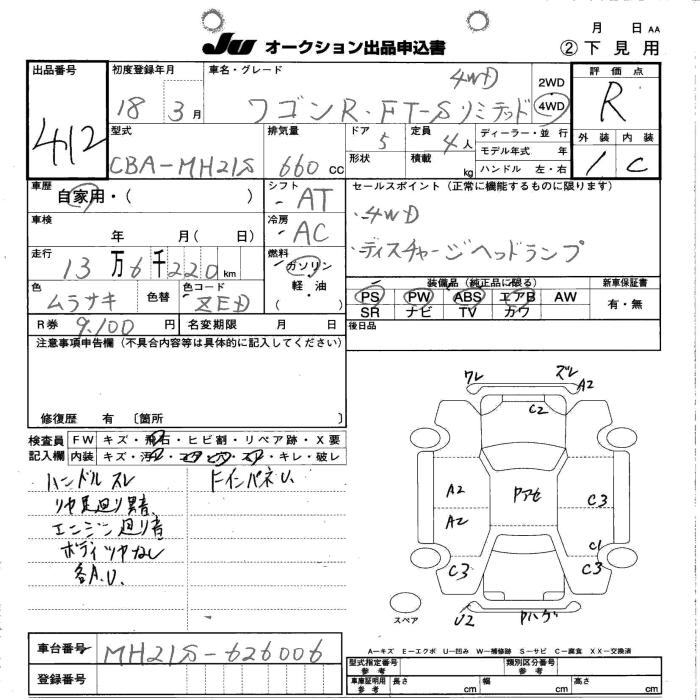 月 日 AA
JU オークション出品申込書 ② 下見用
出品番号 412
初度登録年月 18年 3月
車名・グレード ワゴンR・FT-Sリミテッド 4WD
2WD 4WD
評価点 R
外装 1 内装 C
型式 CBA-MH21S
排気量 660 cc
ドア 5
形状
定員 4人
積載 kg
ディーラー・並行
モデル年式 年
ハンドル 左・右
車歴 自家用・( )
シフト - AT
セールスポイント(正常に機能するものに限ります)
・4WD
・ディスチャージヘッドランプ
車検 年 月(日)
冷房 - AC
走行 13万6千220km
燃料 ガソリン
軽・油
( )
色 ムラサキ 色替
色コード ZED
装備品(純正品に限る) 新車保証書
PS PW ABS エアB AW 有・無
SR ナビ TV カワ
R券 9.100円 名変期限 月 日
後日品
注意事項申告欄(不具合内容等は具体的に記入してください)
修復歴 有 〔箇所 〕
検査員 FW キズ・飛石・ヒビ割・リペア跡・X要
記入欄 内装 キズ・汚れ・コゲ・穴・スレ・キレ・破レ
ハンドル スレ
ドインパネU.
リヤ足廻り異音
エンジン廻り音
ボディツヤなし
各A.U.
ワレ ズレ A2
C2
A2 Pアセ C3
A2
C1
C3 C3
U2 Pハゲ
スペア
A-キズ E-エクボ U-凹み W-補修跡 S-サビ C-腐食 XX-交換済
車台番号 MH21S-626006
登録番号
型式指定番号 参考
類別区分番号 参考
車庫証明用 参考 長さ cm 幅 cm 高さ cm